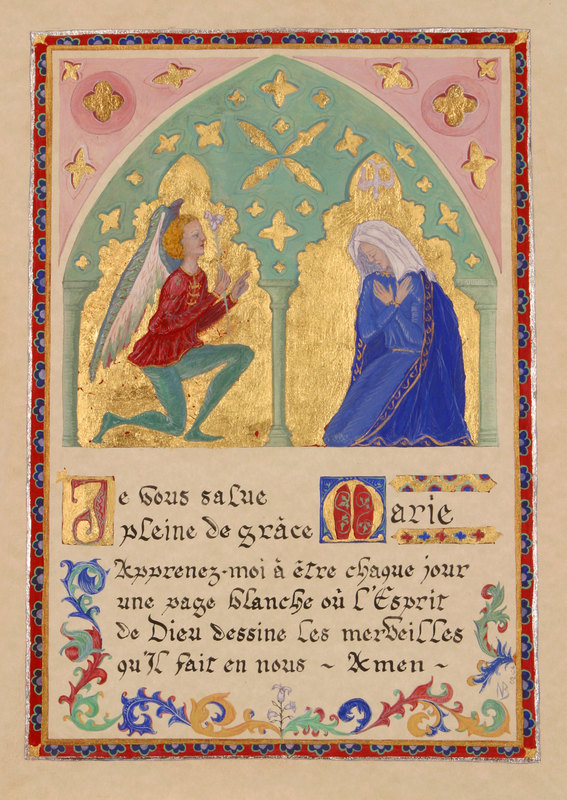 Je vous salue
pleine de grâce Marie
Apprenez-moi à être chaque jour
une page blanche où l'Esprit
de Dieu dessine les merveilles
qu'Il fait en nous ~ Amen ~